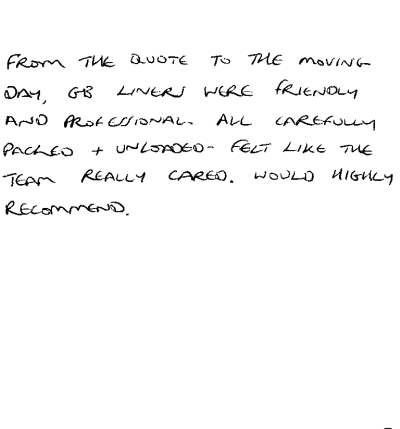 FROM THE QUOTE TO THE MOVING
DAY, GB LINERS WERE FRIENDLY
AND PROFESSIONAL. ALL CAREFULLY
PACKED + UNLOADED- FELT LIKE THE
TEAM REALLY CARED. WOULD HIGHLY
RECOMMEND.